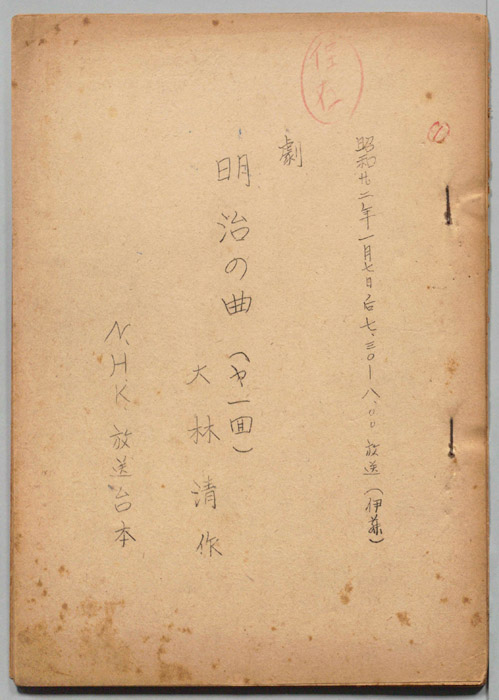 昭和廿二年一月七日后七.三〇―八.〇〇放送(伊藤)
劇
明治の曲(才一回)
大林清作
N.H.K.放送台本